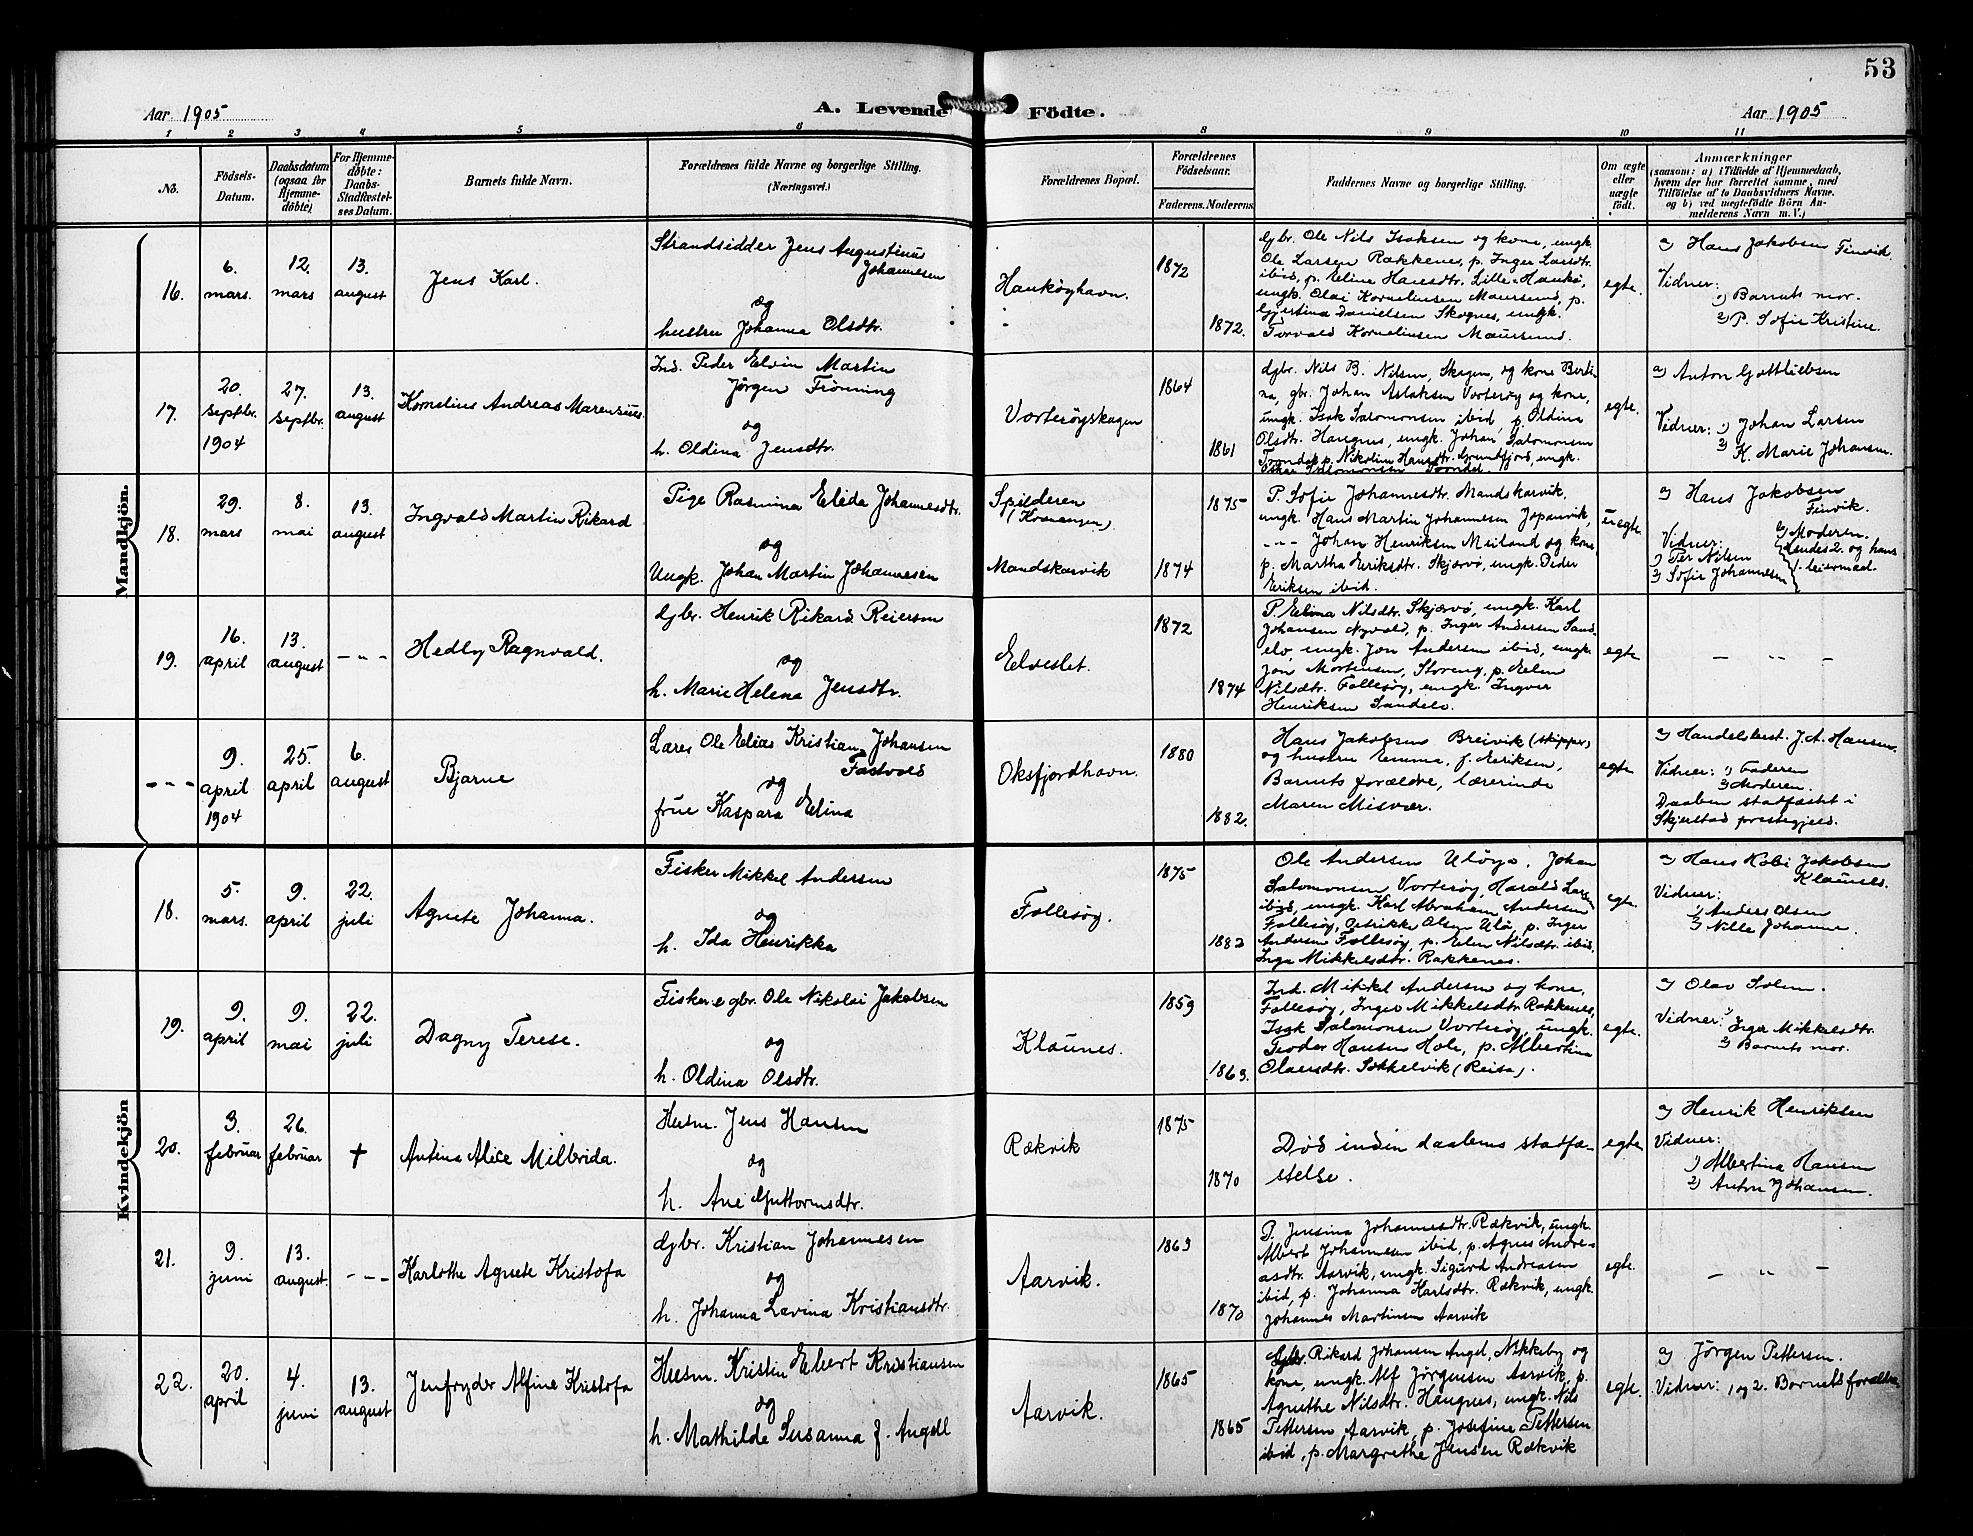 53
Aar 1905
A. Levende Födte.
Aar 1905
1 2 3 4 5 6 8 9 10 11
No.
Födsels-
Datum.
Daabsdatum
(ogsaa for
Hjemme-
döbte)
For Hjemme-
döbte:
Daabs-
Stadfæstel-
ses Datum.
Barnets fulde Navn.
Forældrenes fulde Navne og borgerlige Stilling.
(Næringsvei.)
Forældrenes Bopæl.
Forældrenes
Födselsaar.
Faderens. Moderens.
Faddernes Navne og borgerlige Stilling.
Om ægte
eller
uægte
födt.
Anmærkninger
(saasom: a) i Tilfælde af Hjemmedaab,
hvem der har forrettet samme, med
Tilföielse af to Daabsvidners Navne.
og b) ved uægtefödte Börn An-
melderens Navn m. V.)
Mandkjön.
16.
6.
mars.
12.
mars
13.
august
Jens Karl.
Strandsidder Jens Augustinus
Johannesen
og
hustru Johanna Olsdtr.
Haukøyhavn.
1872
1872.
Gjbr. Ole Nils Isaksen og kone, ungk.
Ole Larsen Rakkenes, p. Inger Larsdtr.
ibid, p. Eline Hansdtr. Lille-Haukø,
ungk. Olai Korneliussen Maursund, p.
Gjertina Danielsen Skognes, ungk.
Torvald Korneliusen Maursund.
egte.
a) Hans Jakobsen Finvid.
Vidner:
1) Barnets mor.
2) P. Sofie Kristine.
17.
20.
septbr.
1904
27.
septbr.
13.
august
Kornelius Andreas Marensius.
Ind. Peder Elvin Martin
Jørgen Frønning
og
h. Oldina Jensdtr.
Vorterøyskagen
1864
1861
gbr. Nils B. Nilsen, Skagen, og kone Berti-
na, gbr. Johan Aslaksen Vorterøy og kone,
ungk. Isak Salomonsen ibid, p. Oldina
Olsdtr. Haugnes, ungk. Johan Salomonsen
p. Nikoline Hansdtr. Grundfjord, ungk.
Salomonsen
egte.
a) Anton Gottliebsen
Vidner: 1) Johan Larsen
2) K. Marie Johansen.
18.
29.
mars
8.
mai
13.
august
Ingvald Martin Rikard
Pige Rasmina Elida Johannesdtr.
og
Ungk. Johan Martin Johannesen
Spilderen
(Kvænangen)
Mandskarvik
1875
1874
P. Sofie Johannesdtr. Mandskarvik,
ungk. Hans Martin Johannesen
- - - Johan Henriksen Meiland og kone,
p. Martha Eriksdtr. Skjervø, ungk. Peder
Eriksen ibid.
uegte
a) Hans Jakobsen
Finvik.
Vidner:
1) Per Nilsen
2) Sofie Johannesen
b) Moderen.
Hendes 2. og hans
1. leiermaal.
19.
16.
april
13.
august
- - -
Hedley Ragnvald.
gbr. Henrik Rikard Reiersen
og
h. Marie Helena Jensdtr.
Elveslet.
1872
1874
P. Elina Nilsdtr. Skjærvø, ungk. Karl
Johansen Nyvold, p. Inger Andersen Sand-
elv, ungk. Jon Andersen ibid, ungk.
Jon Mortensen, Storeng, p. Elen
Nilsdtr. Follesøy, ungk. Ingver
Henriksen Sandelv.
egte
- " -
- - -
9.
april
1904
25.
april
6.
august
Bjarne
Lærer Ole Elias Kristian Johansen
Fastvold
og
frue Kaspara Elina
Oksfjordhavn.
1880
1882.
Hans Jakobsen Breivik (skipper)
og hustru Emma, f. Eriksen,
Barnets forældre, lærerinde
Maren Misvær.
egte
a) Handelsbest. J. A. Hansen,
Vidner: 1) Faderen
2) Moderen.
Daaben stadfæstet i
Skjerstad prestegjeld.
Kvindekjön
18.
5.
mars.
9.
april
22.
juli
Agnete Johanna.
Fisker Mikkel Andersen
og
h. Ida Henrikka
Follesøy.
1875
1882
Ole Andersen Uløya, Johan
Salomonsen Vorterøy, Harald Larsen
ibid, ungk. Karl Abraham Andersen
Follesøy, Petrikke Olsen Ulø, p. Inger
Andersen Follesøy, p. Elen Nilsdtr. ibid,
Inga Mikkelsdtr. Rakkenes.
egte.
a) Hans Kobi Jakobsen
Klaunes.
Vidner:
1) Anders Olsen
2) Nille Johanne.
19.
9.
april
9.
mai
22.
juli
Dagny Terese.
Fisker e gbr. Ole Nikolai Jakobsen
og
h. Oldina Olsdtr.
Klaunes.
1859
1863.
Ind. Mikkel Andersen og kone,
Follesøy, Inger Mikkelsdtr. Rakkenes,
Isak Salomonsen Vorterøy, ungk.
Teodor Hansen Hole, p. Albertina
Olausdtr. Sokkelvik (Reisa).
egte.
a) Olav Solem.
Vidner: 1) Inger Mikkelsdtr.
2) Barnets mor.
20.
3.
februar
26.
februar
†
Antina Alice Milbrida.
Husm. Jens Hansen
og
h. Ane Guttormsdtr.
Rækvik
1875
1870
Død inden daabens stadfæ-
stelse.
egte
a) Henrik Henriksen
Vidner:
1) Albertina Hansen
2) Anton Johansen.
21.
9.
juni
13.
august.
- - -
Karlotte Agnete Kristofa
gbr. Kristian Johannesen
og
h. Johanna Lavina Kristiansdtr.
Aarvik.
1863
1870
P. Jensina Johannesdtr. Rækvik, ungk.
Albert Johannesen ibid, p. Agnes Andre-
asdtr. Aarvik, ungk. Sigurd Andreasen
ibid, p. Johanna Karlsdtr. Rækvik, ungk.
Johannes Martinsen Aarvik
egte.
- " -
22.
20.
april
4.
juni
13.
august
Jenfryder Alfine Kristofa
Husm. Kristin Ebert Kristiansen
og
h. Mathilde Susanna f. Angell
Aarvik.
1865
1865
Gjbr. Rikard Johansen Angel, Nikkeby og
kone, ungk. Alf Jørgensen Aarvik, p.
Agnethe Nilsdtr. Haugnes, ungk. Nils
Pettersen Aarvik, p. Josefine Pettersen
ibid, p. Margrethe Jensen Rækvik
egte.
a) Jørgen Pettersen.
Vidner: 1 og 2. Barnets forældre